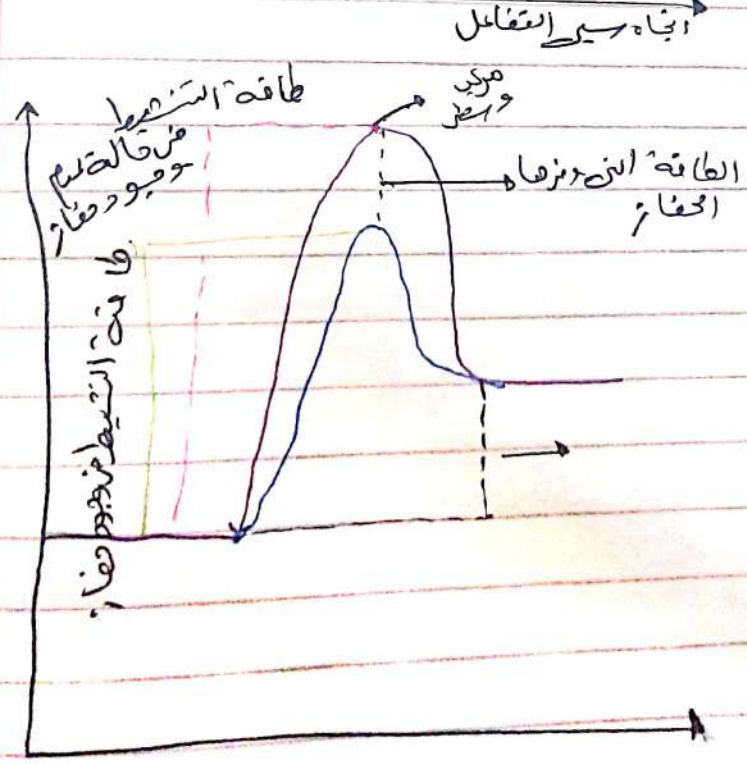 اتجاه سير التفاعل
طاقة التنشيط
في حالة عدم
وجود حفاز
مركب
وسطي
الطاقة التي وفرها
الحفاز
طاقة التنشيط في وجود حفاز